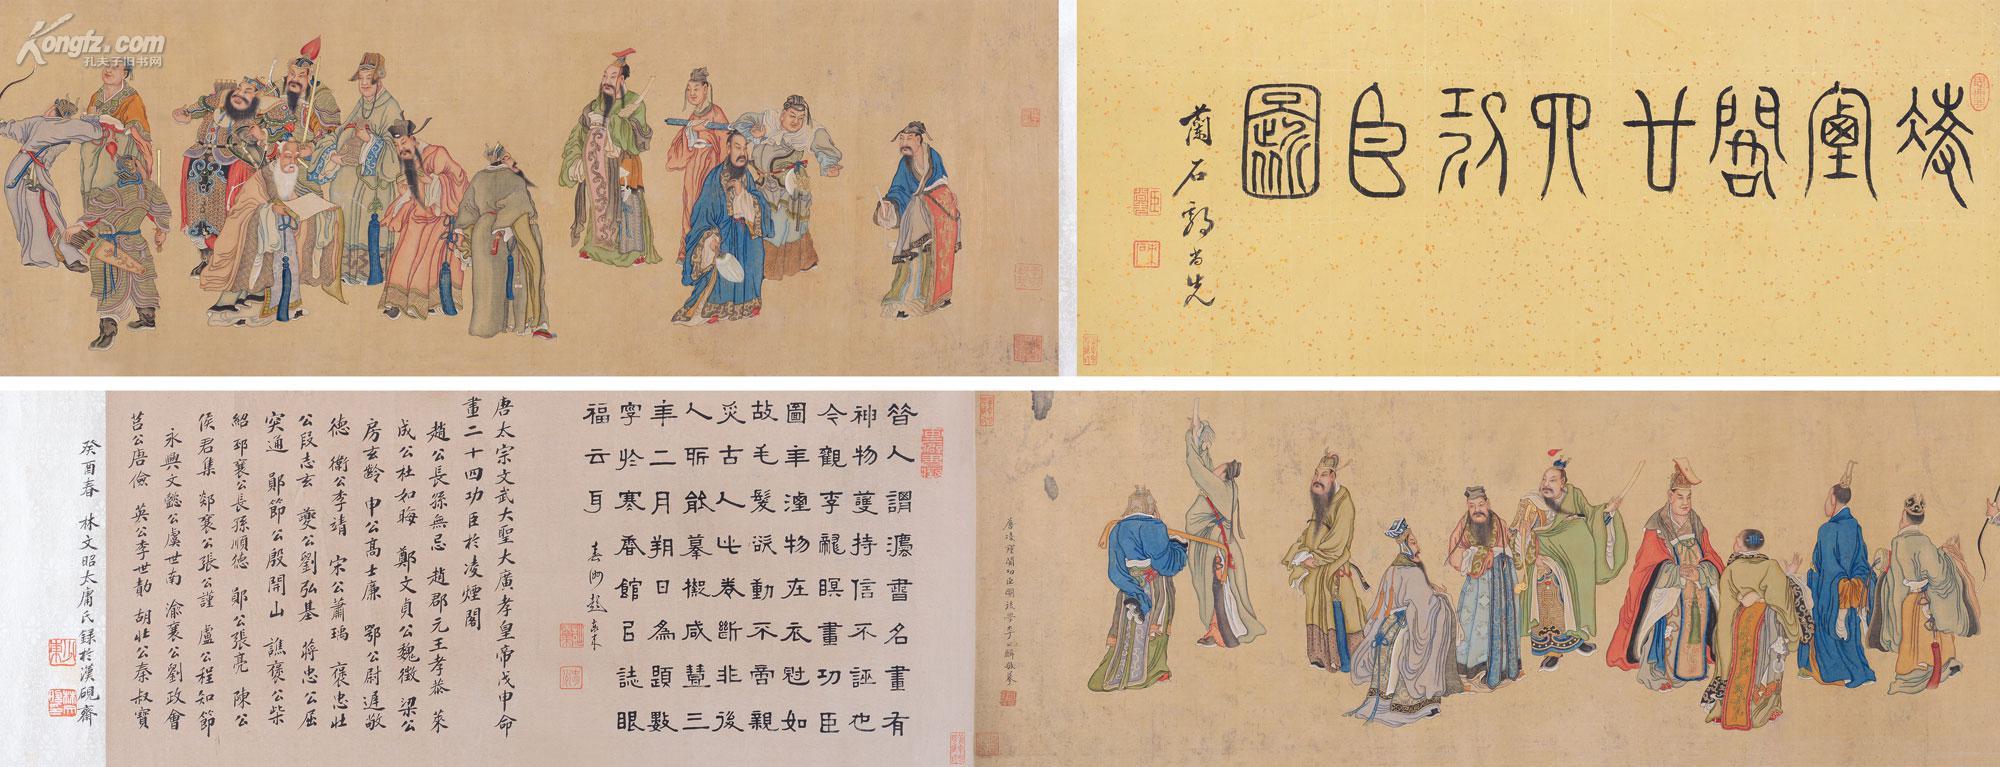 Kongfz.com
孔夫子旧书网
凌煙閣廿四功臣圖
蘭石郭尚先
唐凌煙閣功臣圖後學李公麟敬摹
昔人謂灋書名畫有
神物護持信不誣也
今觀李龍瞑畫功臣
圖年湮物在衣冠如
故毛髮欲動不啻親
炙古人此卷斷非後
人所能摹擬咸豐三
年二月朔日為題數
字於寒香館以誌眼
福云耳 春洲趙
唐太宗文武大聖大廣孝皇帝戊申命
畫二十四功臣於凌煙閣
趙公長孫無忌 趙郡元王孝恭 萊
成公杜如晦 鄭文貞公魏徵 梁公
房玄齡 申公高士廉 鄂公尉遲敬
德 衛公李靖 宋公蕭瑀 褒忠壯
公段志玄 夔公劉弘基 蔣忠公屈
突通 鄖節公殷開山 譙襄公柴
紹 邳襄公長孫順德 鄖公張亮 陳公
侯君集 郯襄公張公謹 盧公程知節
永興文懿公虞世南 渝襄公劉政會
莒公唐儉 英公李世勣 胡壯公秦叔寶
癸酉春 林文昭太庸氏錄於漢硯齋